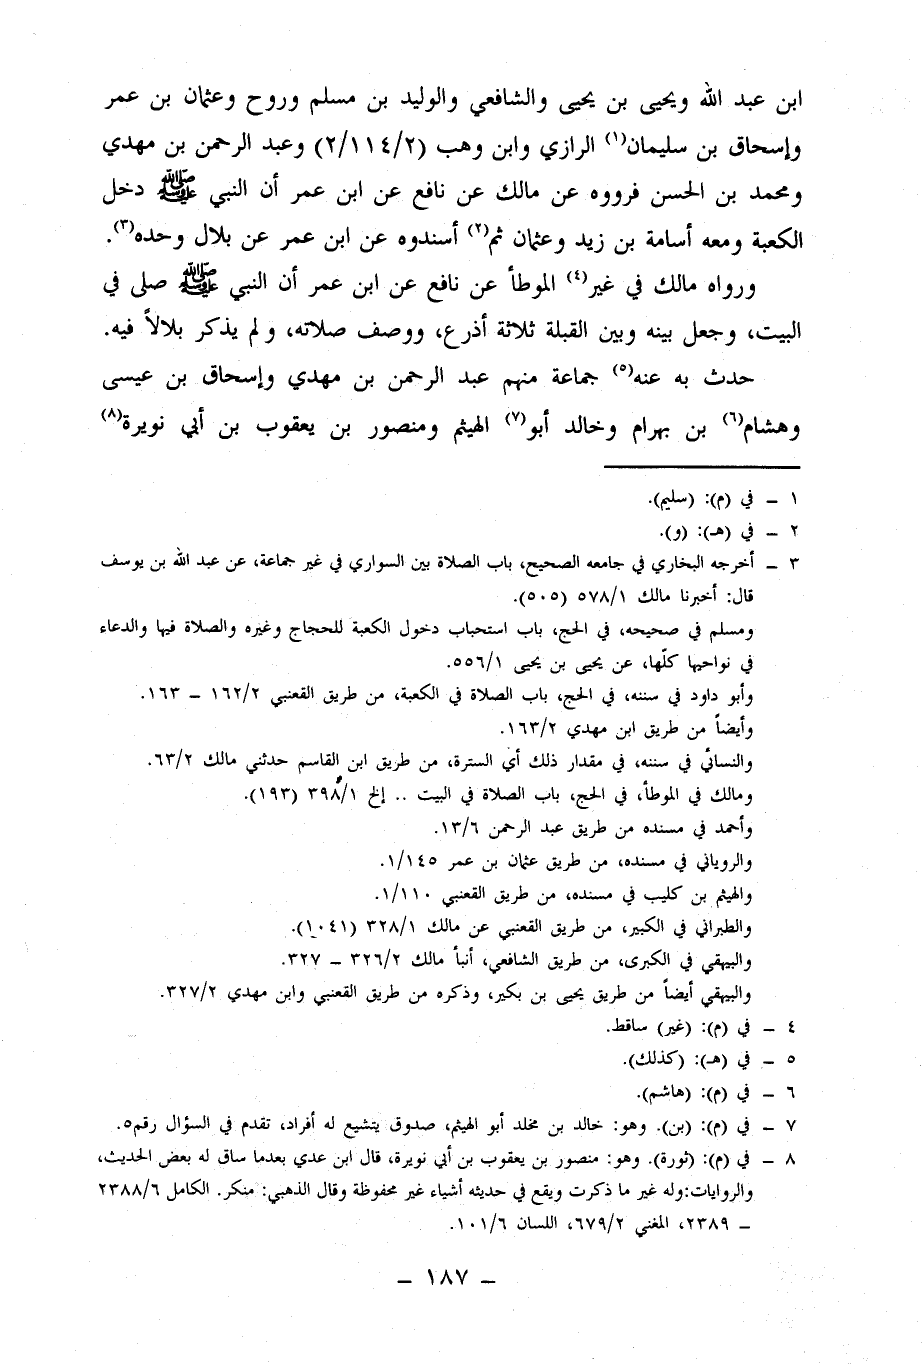 ابن عبد الله ويحيى بن يحيى والشافعي والوليد بن مسلم وروح وعثمان بن عمر
وإسحاق بن سليمان(١) الرازي وابن وهب (٢/١١٤/٢) وعبد الرحمن بن مهدي
ومحمد بن الحسن فرووه عن مالك عن نافع عن ابن عمر أن النبي ﷺ دخل
الكعبة ومعه أسامة بن زيد وعثمان ثم(٢) أسندوه عن ابن عمر عن بلال وحده(٣).
ورواه مالك في غير(٤) الموطأ عن نافع عن ابن عمر أن النبي ﷺ صلى في
البيت، وجعل بينه وبين القبلة ثلاثة أذرع، ووصف صلاته، ولم يذكر بلالاً فيه.
حدث به عنه(٥) جماعة منهم عبد الرحمن بن مهدي وإسحاق بن عيسى
وهشام(٦) بن بهرام وخالد أبو(٧) الهيثم ومنصور بن يعقوب بن أبي نويرة(٨)
١ – في (م): (سليم).
٢ – في (هـ): (و).
٣ – أخرجه البخاري في جامعه الصحيح، باب الصلاة بين السواري في غير جماعة، عن عبد الله بن يوسف
قال: أخبرنا مالك ٥٧٨/١ (٥٠٥).
ومسلم في صحيحه، في الحج، باب استحباب دخول الكعبة للحجاج وغيره والصلاة فيها والدعاء
في نواحيها كلّها، عن يحيى بن يحيى ٥٥٦/١.
وأبو داود في سننه، في الحج، باب الصلاة في الكعبة، من طريق القعنبي ١٦٢/٢ – ١٦٣.
وأيضاً من طريق ابن مهدي ١٦٣/٢.
والنسائي في سننه، في مقدار ذلك أي السترة، من طريق ابن القاسم حدثني مالك ٦٣/٢.
ومالك في الموطأ، في الحج، باب الصلاة في البيت .. إلخ ٣٩٨/١ (١٩٣).
وأحمد في مسنده من طريق عبد الرحمن ١٣/٦.
والروياني في مسنده، من طريق عثمان بن عمر ١/١٤٥.
والهيثم بن كليب في مسنده، من طريق القعنبي ١/١١٠.
والطبراني في الكبير، من طريق القعنبي عن مالك ٣٢٨/١ (١٠٤١).
والبيهقي في الكبرى، من طريق الشافعي، أنبأ مالك ٣٢٦/٢ – ٣٢٧.
والبيهقي أيضاً من طريق يحيى بن بكير، وذكره من طريق القعنبي وابن مهدي ٣٢٧/٢.
٤ – في (م): (غير) ساقط.
٥ – في (هـ): (كذلك).
٦ – في (م): (هاشم).
٧ – في (م): (بن). وهو: خالد بن مخلد أبو الهيثم، صدوق يتشيع له أفراد، تقدم في السؤال رقم٥.
٨ – في (م): (ثورة). وهو: منصور بن يعقوب بن أبي نويرة، قال ابن عدي بعدما ساق له بعض الحديث،
والروايات:وله غير ما ذكرت ويقع في حديثه أشياء غير محفوظة وقال الذهبي: منكر. الكامل ٢٣٨٨/٦
– ٢٣٨٩، المغني ٦٧٩/٢، اللسان ١٠١/٦.
– ١٨٧ –